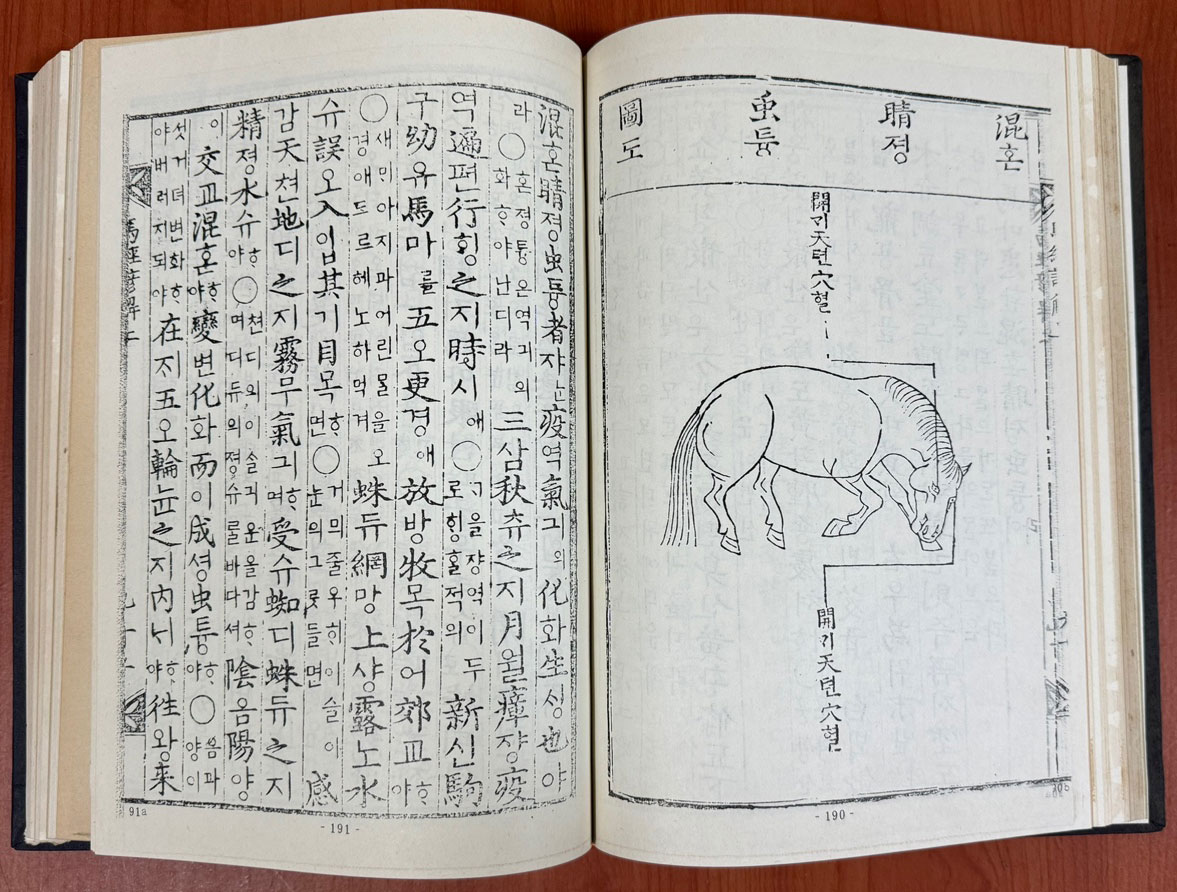 混혼
睛졍
虫튱
圖도
開ᄀᆡ天텬穴혈
開ᄀᆡ天텬穴혈
- 190 -
混혼睛졍虫튱者쟈ᄂᆞᆫ疫역氣긔의化화生ᄉᆡᆼ也야
라○혼졍튱온역긔의화ᄒᆞ야난디라三삼秋츄之지月월瘴쟝疫
역遍편行ᄒᆡᆼ之지時시애○ᄀᆞ을쟝역이두로ᄒᆡᆼᄒᆞᆯ적의新신駒
구幼유馬마를五오更경애放방牧목於어郊교ᄒᆞ야
○새ᄆᆡ아지과어린ᄆᆞᆯ을오경애드르헤노하먹겨蛛듀網망上샹露노水
슈誤오入입其기目목ᄒᆞ면○거믜줄우희이슬이눈의그릇들면感
감天텬地디之지霧무氣긔ᄒᆞ며受슈蜘디蛛듀之지
精졍水슈ᄒᆞ야○텬디의이슬긔운을감ᄒᆞ며디듀의졍슈를바다셔陰음陽양
이交교混혼ᄒᆞ야變변化화而이成셩虫튱ᄒᆞ야○음과양이
섯거뎌변화ᄒᆞ야버러지되야在ᄌᆡ五오輪륜之지內ᄂᆡᄒᆞ야往왕来
馬經諺解二
91a
- 191 -